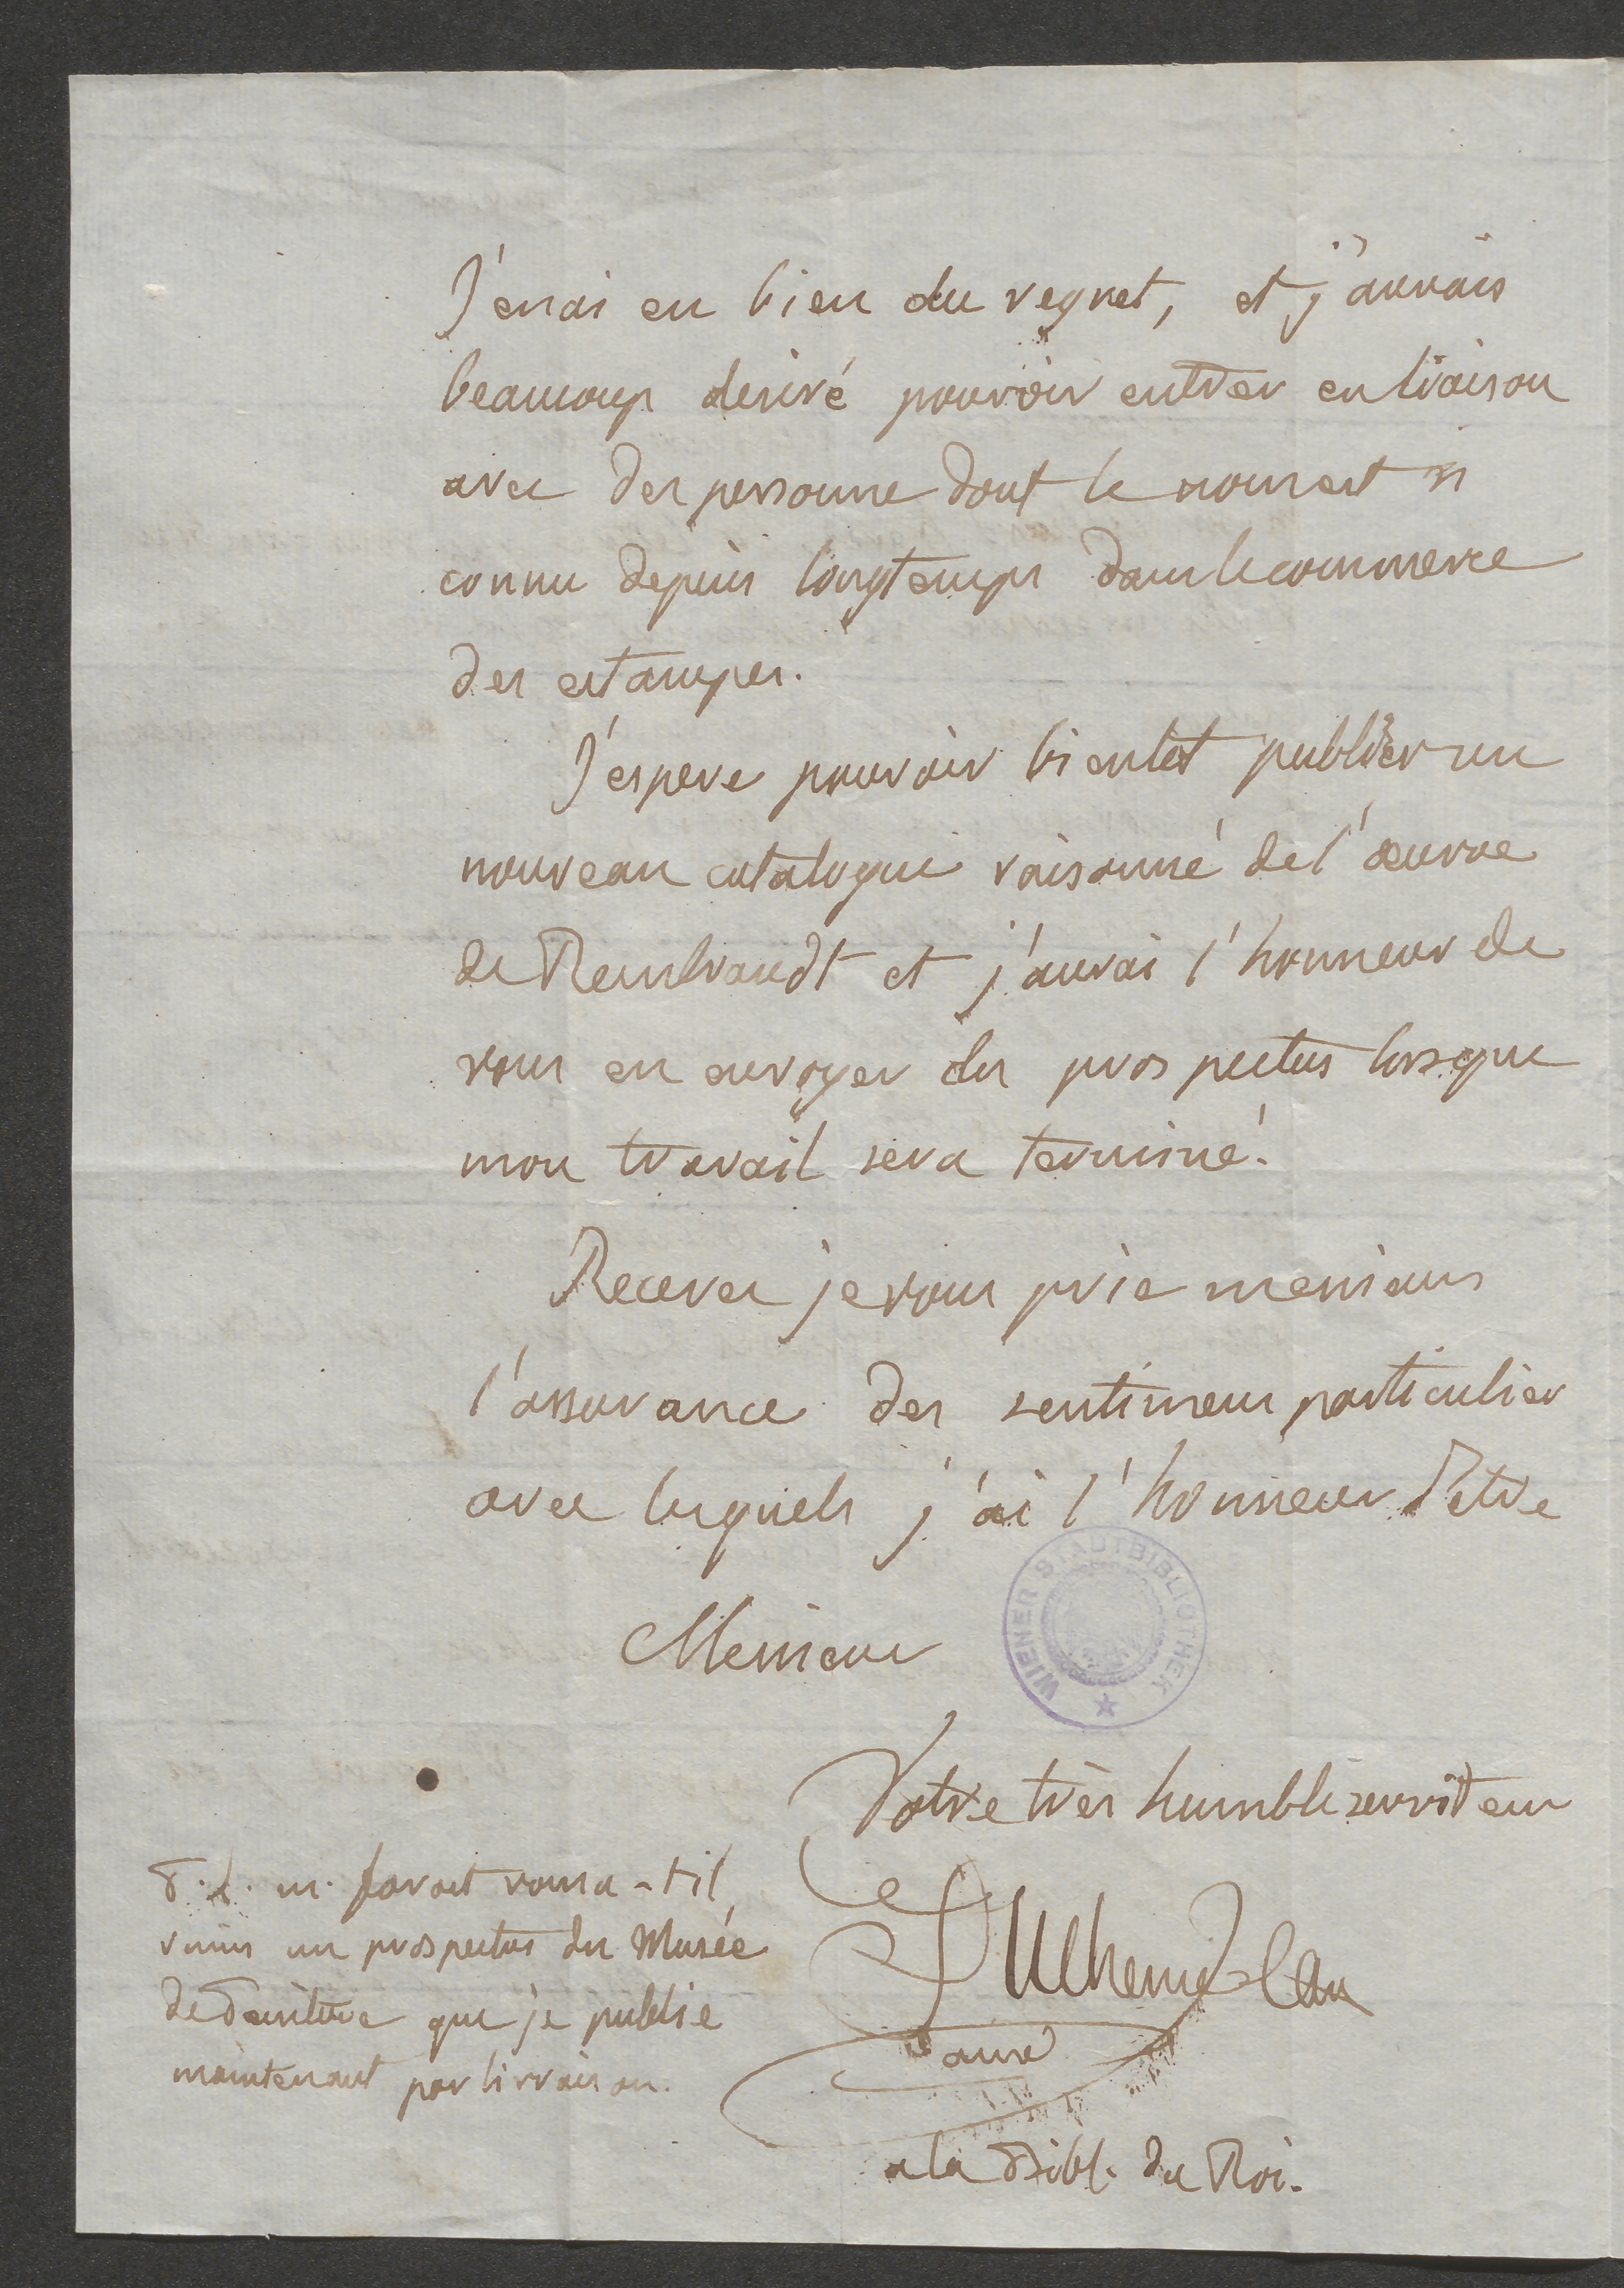 J'en ai eu bien du regret, et j'aurais
beaucoup desiré pouvoir entrer en liaison
avec des personne dont le nom est si
connu depuis longtemps dans le commerce
des estampes.
J'espere pouvoir bientot publier un
nouveau catalogue raisonné de l'œuvre
de Rembrandt et j'aurai l'honneur de
vous en envoyer des prospectus lorsque
mon travail sera terminé.
Recevez je vous prie messieurs
l'assurance des sentimens particulier
avec lesquels j'ai l'honneur d'etre
Messieurs
WIENER STADTBIBLIOTHEK
Votre très humble serviteur
Duchesne
ainé
a la Bibl. du Roi.
P. S. m. vous a-t-il
remis un prospectus du Musée
de Peinture que je publie
maintenant par livraison.